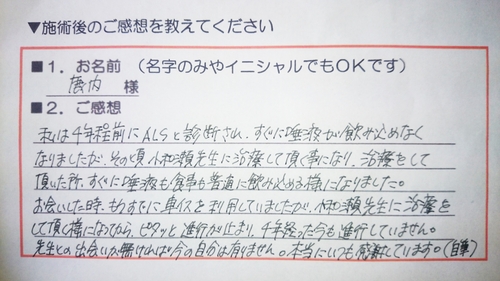 ▼施術後のご感想を教えてください
■1．お名前 （名字のみやイニシャルでもOKです）
鹿内 様
■2．ご感想
私は4年程前にALSと診断され、すぐに唾液が飲み込めなく
なりましたが、その頃小和瀬先生に治療して頂く事になり、治療をして
頂いた所、すぐに唾液も食事も普通に飲み込める様になりました。
お会いした時、もうすでに車イスを利用していましたが、小和瀬先生に治療を
して頂く様になってから、ピタッと進行が止まり、4年経った今も進行していません。
先生との出会いが無ければ今の自分は有りません。本当にいつも感謝しています。（自筆）